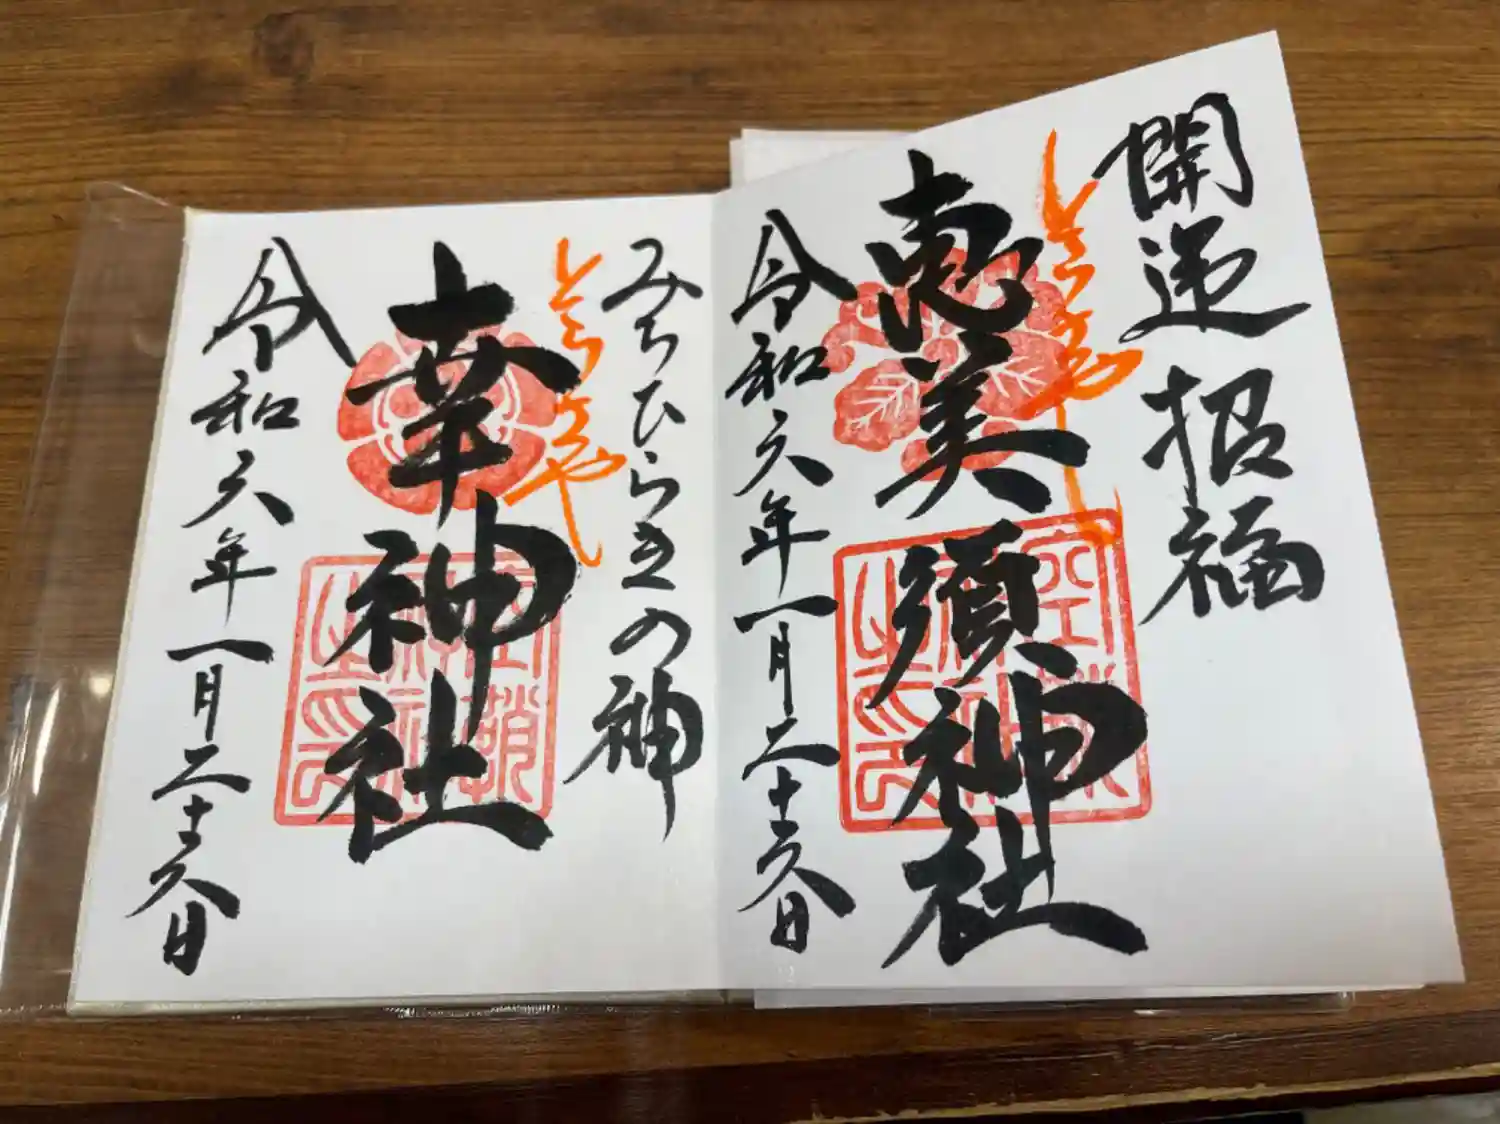 開運 招福
そらさや
恵美須神社
令和六年一月二十六日
みちひらきの神
そらさや
幸神社
令和六年一月二十六日